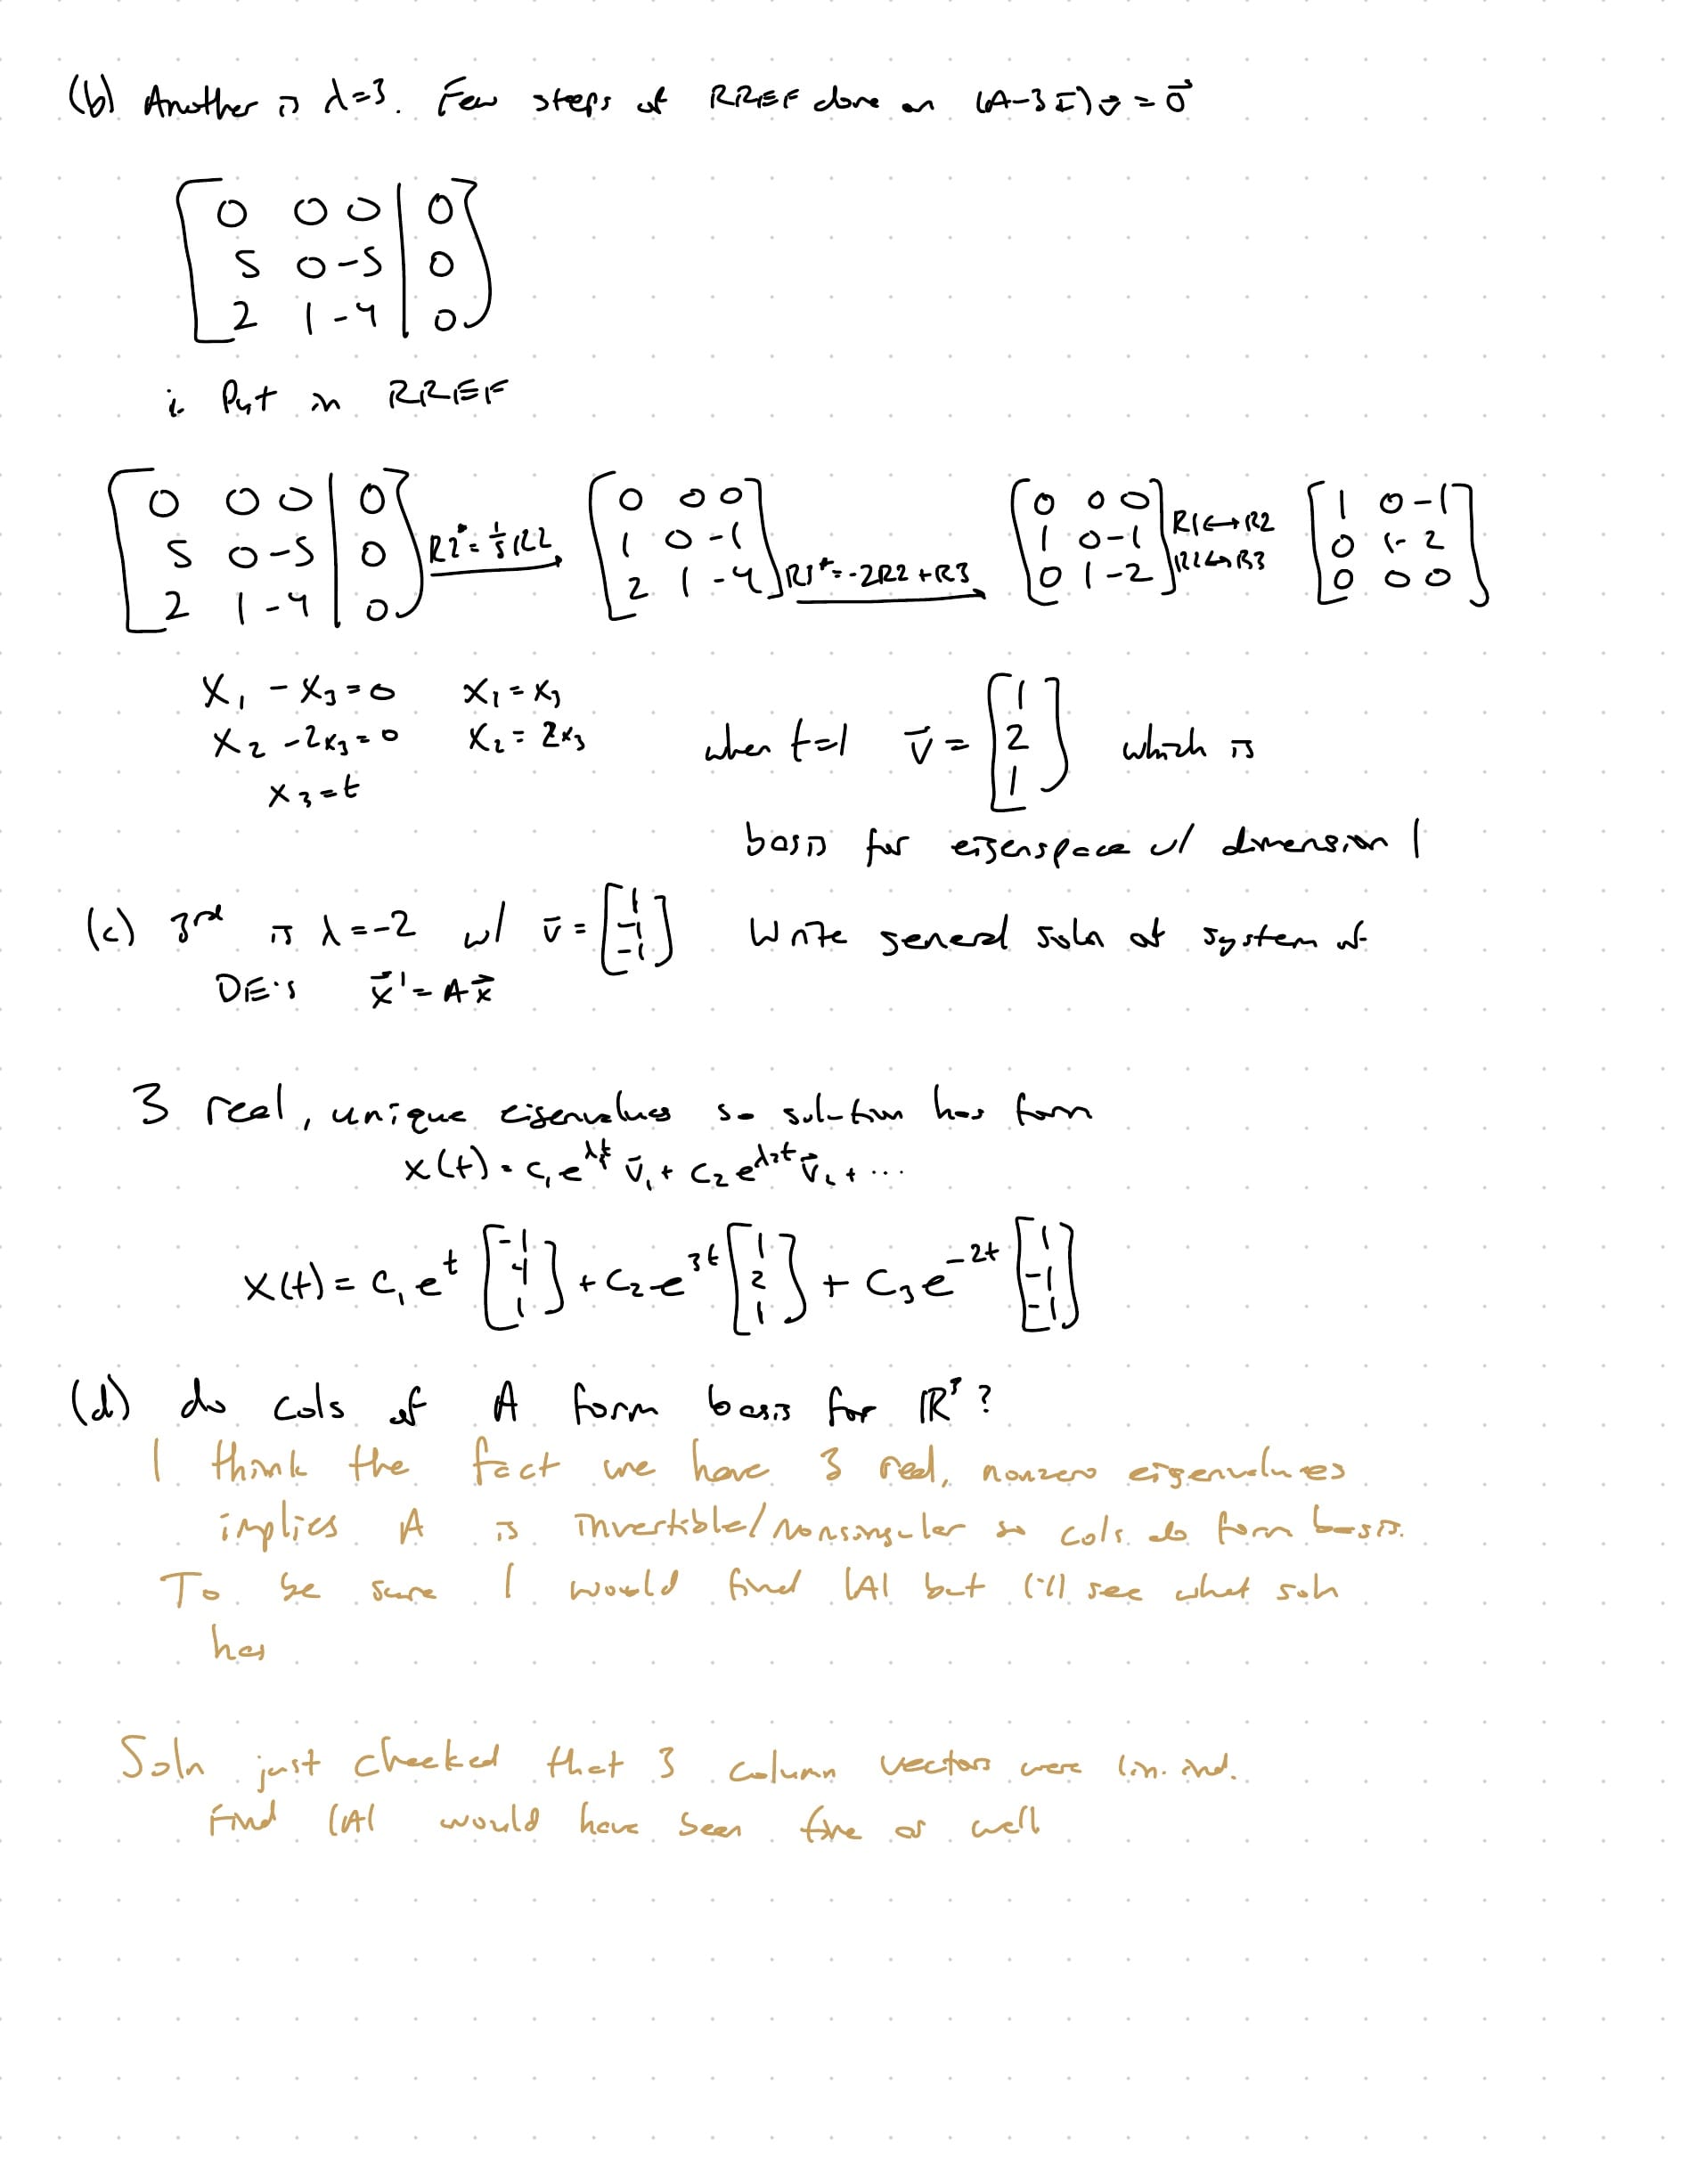 (b) Another is λ=3. Few steps of RREF done on (A-3I)v⃗ = 0⃗
[0 0 0 | 0]
[5 0 -5 | 0]
[2 1 -4 | 0]
i. Put in RREF
[0 0 0 | 0] [0 0 0] [0 0 0] R1↔R2 [1 0 -1]
[5 0 -5 | 0] R2*=1/5R2 [1 0 -1] [1 0 -1] R2↔R3 [0 1 -2]
[2 1 -4 | 0] [2 1 -4] R3*=-2R2+R3 [0 1 -2] [0 0 0]
x₁ - x₃ = 0 x₁ = x₃
x₂ - 2x₃ = 0 x₂ = 2x₃ when t=1 v⃗ = [1 2 1] which is
x₃ = t
basis for eigenspace w/ dimension 1
(c) 3rd is λ=-2 w/ v⃗ = [1 -1 -1] Write general soln of system of
DE's x⃗' = Ax⃗
3 real, unique eigenvalues so solution has form
x(t) = c₁e^λ₁t v⃗₁ + c₂e^λ₂t v⃗₂ + ...
x(t) = c₁e^t [-1 4 1] + c₂e^3t [1 2 1] + c₃e^-2t [1 -1 -1]
(d) do cols of A form basis for ℝ³?
I think the fact we have 3 real, nonzero eigenvalues
implies A is invertible/nonsingular so cols do form basis.
To be sure I would find |A| but I'll see what soln
has
Soln just checked that 3 column vectors were lin. ind.
Find |A| would have been fine as well